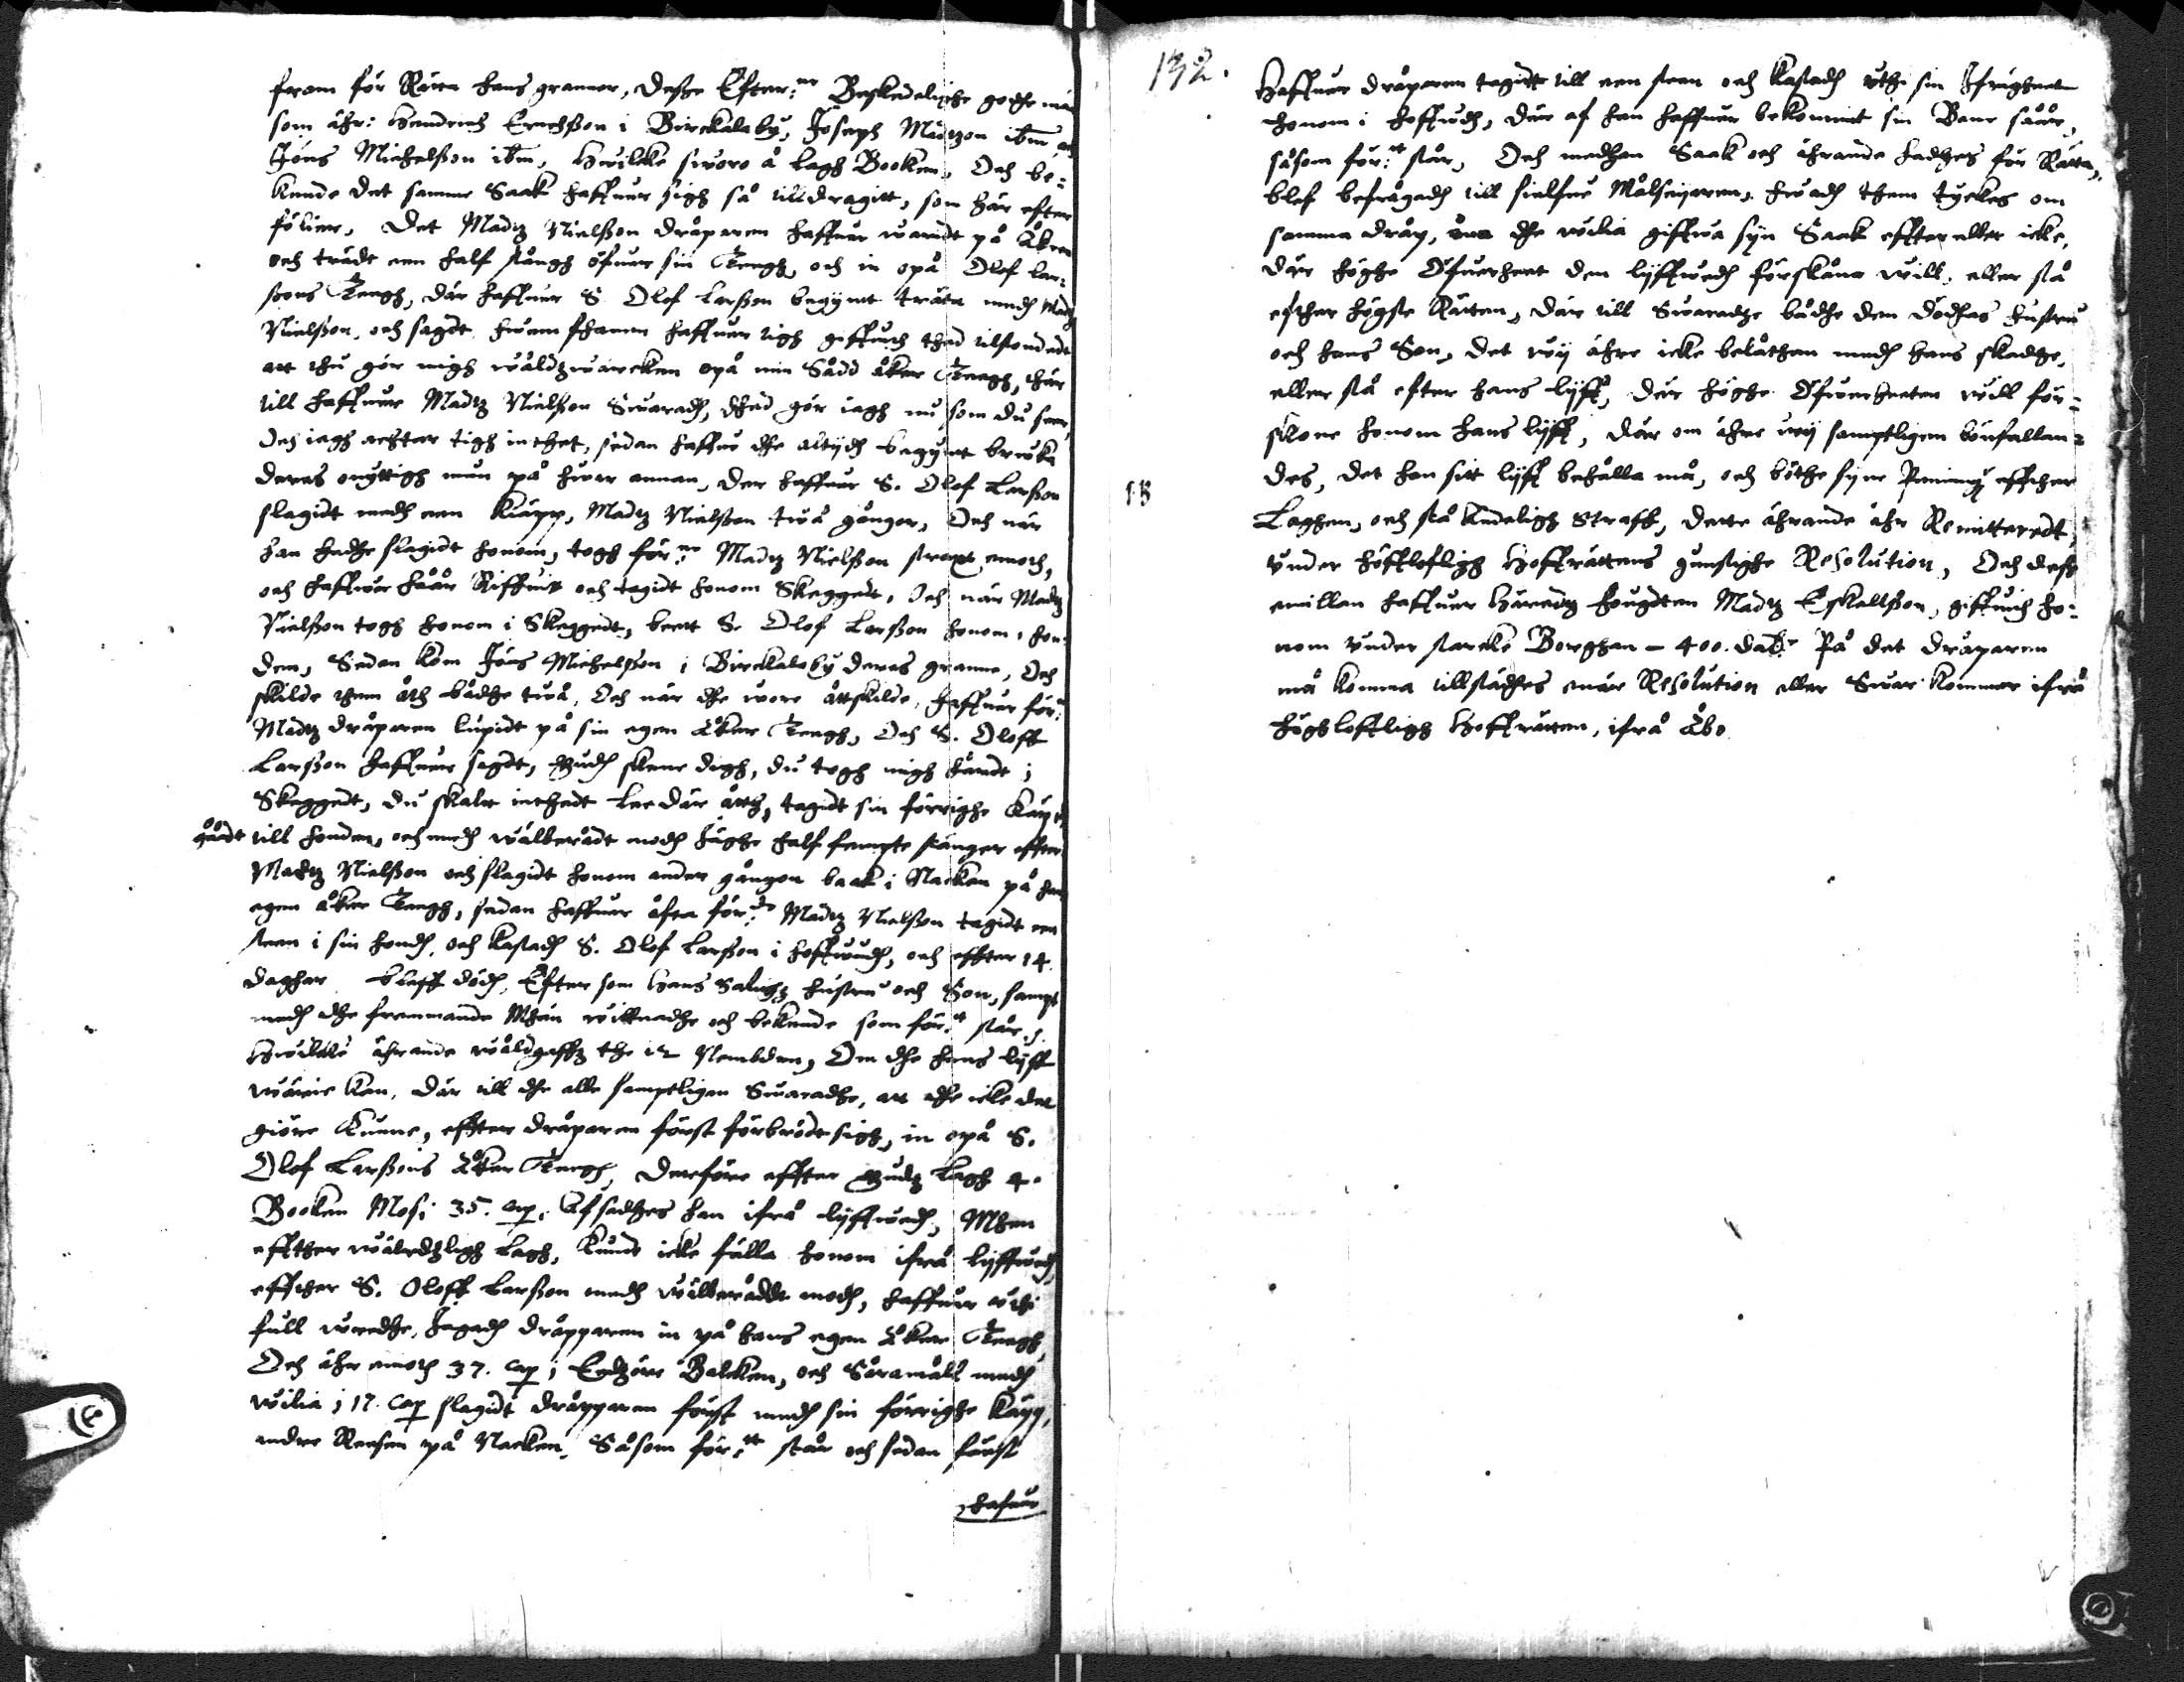 fram för Rätta hans granner, deße Efter:ne Beskedelighe godhe män
som ähr: Hendrich Erichßon i Birckalaby, Joseph Madtzon ibm, och
Jöns Michelßon ibm, Hwilcke sworo å lagh Booken, Och be:
kende det samme Saak haffuer sigh så tilldragitt, som här efter
fölier, Det Madtz Nielßon dråparen haffuer waridt på Åkren
och trädt een half stångh öfuer sin Teegh, och in opå Olof Lar:
ßons Teegh, där haffuer S. Olof Larßon begynt träta medh Madtz
Nielßon, och sagdt hwem fhanen haffuer tigh giffuith thed tilståndedt
att thu gör migh wåldzwärcken opå min Sådd åker Teegh, här
till haffuer Madtz Nielßon Swaradh, dhed gör iagh nu som du seer,
Och iagh achter tigh inthet, sedan haffue dhe altijdh begynt bruka
deras onyttigh mun på hwar annan, der haffuer S. Olof Larßon
slagidt medh een Käpp, Madtz Nielßon två gånger, Och när
han hadhe slagidt honom, togh för:ne Madtz Nielßon straxt emoth,
och haffuer håår Riffuit och tagidt honom Skeggedt, Och när Madtz
Nielßon togh honom i Skeggedt, beett S. Olof Larßon honom i hon:
den, Sedan kom Jöns Michelßon i Birckalaby deras granne, Och
skilde them åth bådhe två, Och när dhe wore åttskilde, haffuer för:ne
Madtz dråparen lupidt på sin egen Åker Teegh, Och S. Oloff
Larßon haffuer sagdt, Gudh skene digh, du togh migh händt i
Skeggedt, du skalt inthedt lee där åtth, tagidt sin förrighe Käpp
gåådt till honden, och medh wälberådt modh häghe half fempte stånger effter
Madtz Nielßon och slagidt honom andre gången baak i Nacken på hans
egen åker Teegh, sedan haffuer åfta för:de Madtz Nielßon tagidt een
steen i sin hondh, och kastadh S. Olof Larßon i hoffwudh, och effter 14.
daghar bleff dödh, Efter som hans Salighz hustru och Son, sampt
medh dhe fremmande Mhän wittnadhe och bekende som för:tt står,
Hwilcke ährande wåldgaffz the 12 Nembden, Om dhe hans lijff
wärie kan, där till dhe alle samptligen Swaradhe, att dhe icke det
giöre kunne, effter dråparen först förbrödt sigh, in opå S.
Olof Larßons Åker Teegh, dereföre effter Gudz Lagh 4.
Booken Mosi 35. cap. Afsadhes han ifrå lijffwedh, Mhen
effther wärldzligh Lagh, kunde icke fälla honom ifrå lijffwedh,
effther S. Oloff Larßon medh wälberåddt modh, haffuer uthi
full wredhe, Jagadh dråpparen in på hans egen Åker Teegh,
Och ähr emoth 37. cap i Edzöre Balcken, och Såramåll medh
wilia i 17. cap slagidt dråpparen först medh sin förrighe Käpp,
andre Reesen på Nacken, Såsom för:tt står och sedan först
hafuer
132.
Haffuer dråparen tagitt till een steen och kastadh uthi sin Ifrigheet
honom i hoffwdh, där af han haffuer bekommit sin Bane såår,
såsom för:tt står, Och medhan Saak och ährande hadhes för Rätta,
blef befrågadh till sielfue Målseyaren, hwadh them tyckes om
samma dråp, dhe wilia giffwa syn Saak effter eller icke,
där höghe Öfwerheet den lijffwedh förskåna will, eller stå
efther högste Rätten, där till Swaradhe bådhe den dödhas hustru
och hans Son, det wij ähre icke belåthen medh hans skadhe,
eller stå efter hans lijff, där höghe Öfwerheeten will för=
skone honom hans lijff, där om ähre wij samptligen bönfallan=
des, det han sitt lijff behålla må, och böthe syne Peninger effther
Laghen, och stå Andeligh Straff, dette ährande ähr Remitteredt,
under höffloffligh Hoffrättens gunstighe Resolution, Och dess
emillan haffuer Häredz fougdten Madtz Eskellßon, giffuith ho:
nom under starcke Borghan - 400. dal:r På det dråparen
må komma tillstädhes enär Resolution eller Swar kommer ifrå
höghloffligh Hoffrätten, ifrå Åbo.